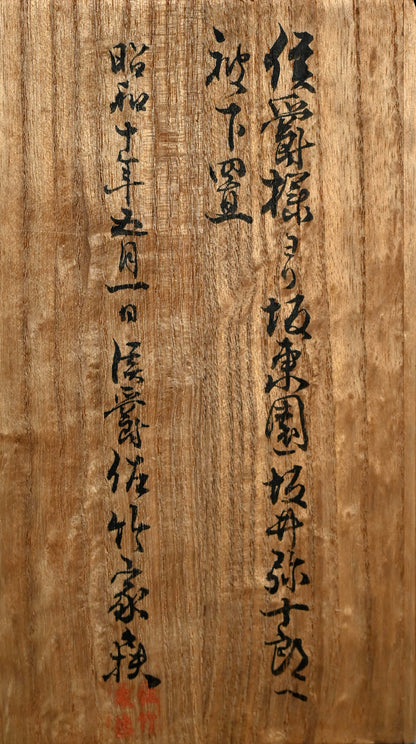 侯爵様ヨリ坂東園坂井弥十郎ヘ
被下置
昭和十年五月一日 侯爵佐竹家扶